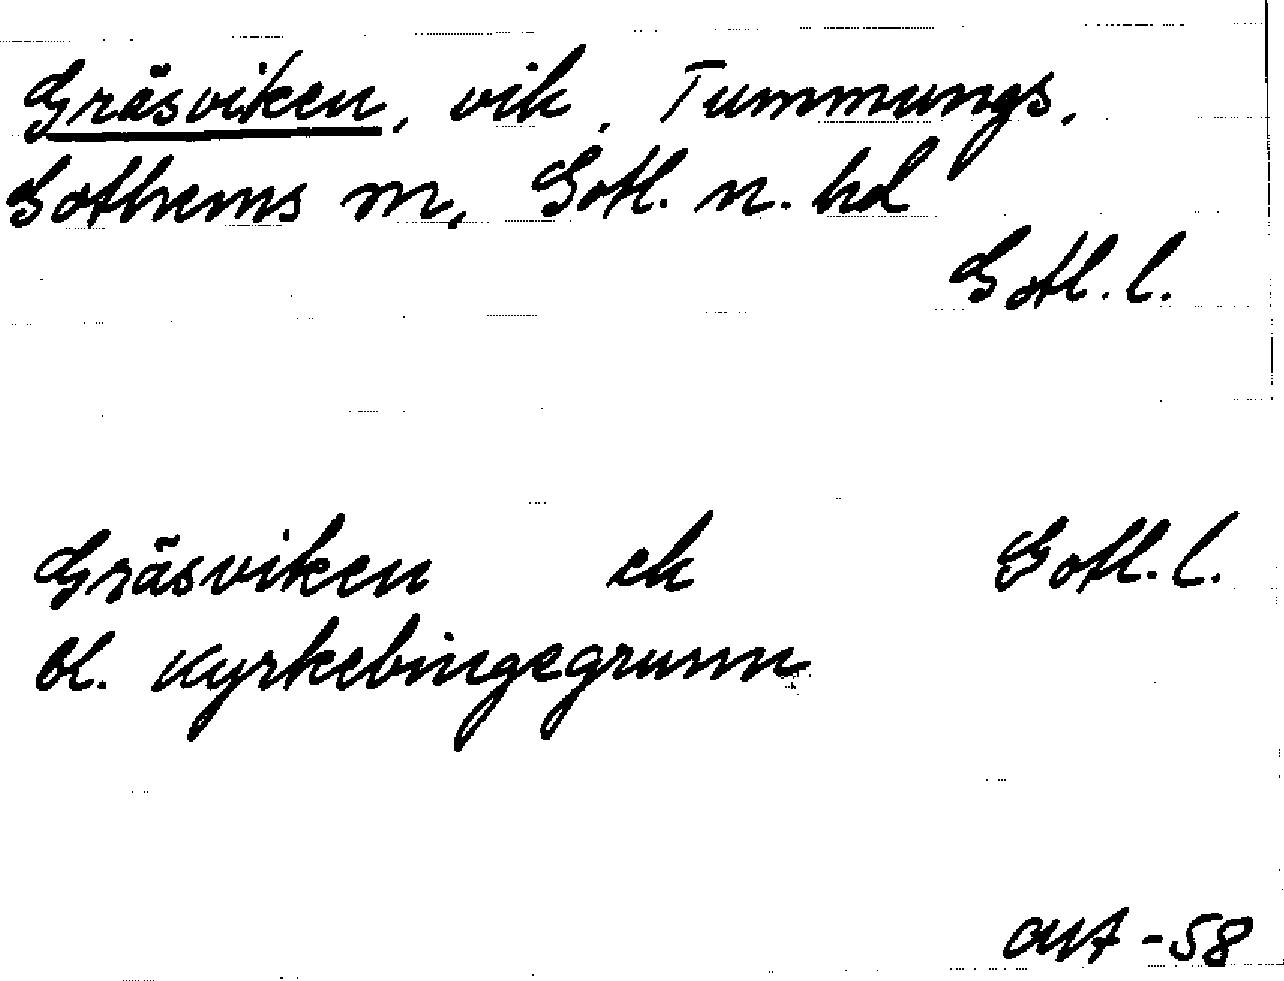 Gräsviken, vik, Tummungs,
Gothems sn, Gotl. n. hd
Gotl. l.
Gräsviken ek Gotl. l.
bl. Kyrkebingegrunn
-58